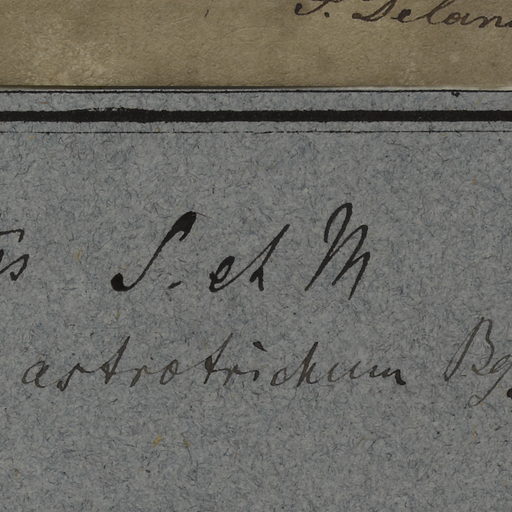 P. Delan
s S. et M
astrotrichum Bg